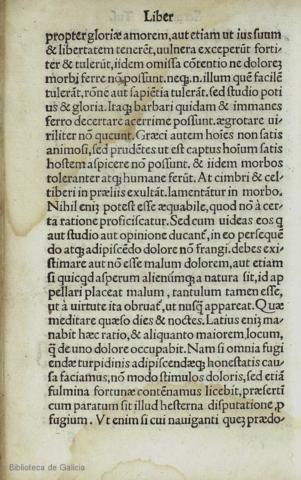 Liber
propter gloriæ amorem, aut etiam ut ius suum
& libertatem tenerẽt, uulnera exceperũt forti-
ter & tulerũt, iidem omissa cõtentio ne dolorẽ
morbi ferre nõ possunt. neqȝ. n. illum quẽ facilẽ
tulerãt, rõne aut sapiẽtia tulerãt. sed studio poti
us & gloria. Itaqȝ barbari quidam & immanes
ferro decertare acerrime possunt. ægrotare ui-
riliter nõ queunt. Græci autem hoies non satis
animosi, sed prudẽtes ut est captus hoium satis
hostem aspicere nõ possunt. & iidem morbos
toleranter atqȝ humane ferũt. At cimbri & cel-
tiberi in præliis exultãt. lamentãtur in morbo.
Nihil enĩȝ potest esse æquabile, quod nõ à cer-
ta ratione proficiscatur. Sed cum uideas eos q
aut studio aut opinione ducant̃, in eo persequẽ
do atqȝ adipiscẽdo dolore nõ frangi. debes exi-
stimare aut nõ esse malum dolorem, aut etiam
si quicqd asperum alienũmqȝ a natura sit, id ap
pellari placeat malum, tantulum tamen esse,
ut à uirtute ita obruat̃, ut nusq̃ appareat. Quæ
meditare quæso dies & noctes. Latius enĩȝ ma-
nabit hæc ratio, & aliquanto maiorem locum,
q̃ de uno dolore occupabit. Nam si omnia fugi
endæ turpidinis adipiscendæqȝ honestatis cau-
sa faciamus, nõ modo stimulos doloris, sed etiã
fulmina fortunæ contẽnamus licebit, præserti
cum paratum sit illud hesterna disputatione, p
fugium. Vt enim si cui nauiganti queȝ prædo-
Biblioteca de Galicia